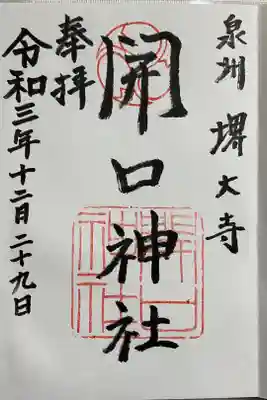 泉州 堺大寺
開口神社
奉拝
令和三年十二月二十九日